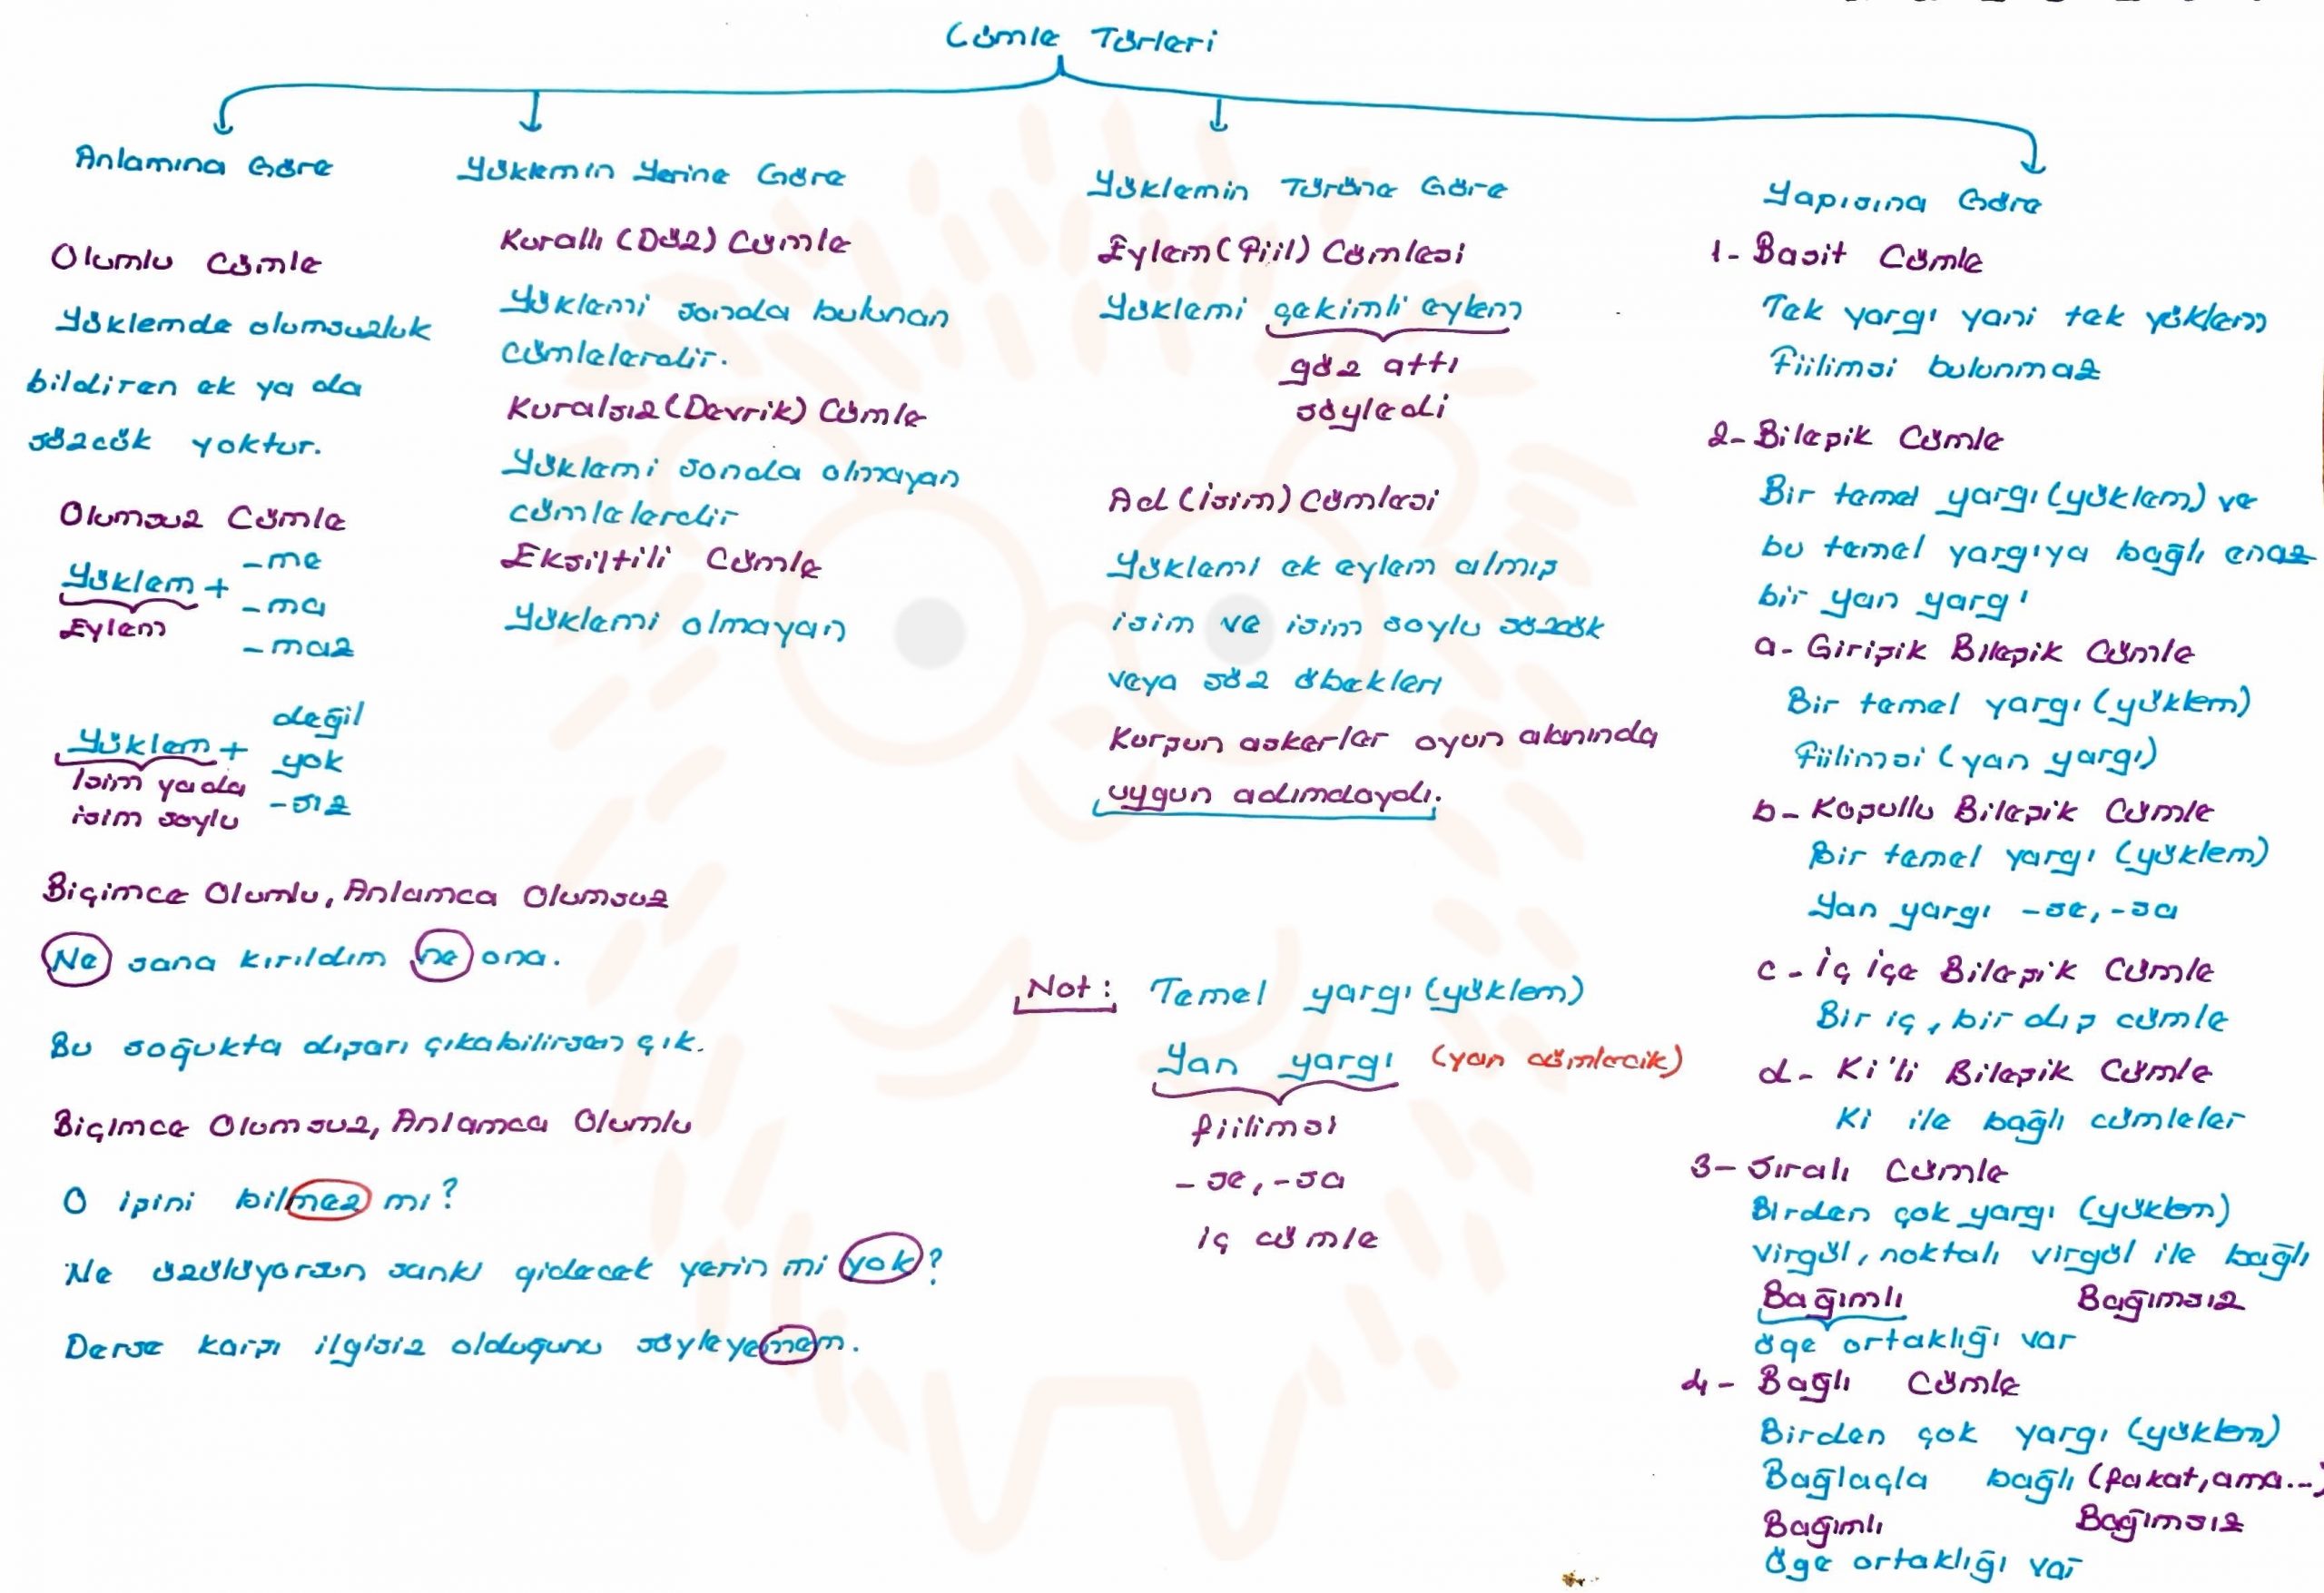 Cümle Türleri
Anlamına Göre
Olumlu Cümle
Yüklemde olumsuzluk
bildiren ek ya da
sözcük yoktur.
Olumsuz Cümle
Yüklem + -me
-ma
-maz
Eylem
Yüklem + değil
yok
-sız
İsim ya da
isim soylu
Biçimce Olumlu, Anlamca Olumsuz
Ne sana kırıldım ne ona.
Bu soğukta dışarı çıkabilirsen çık.
Biçimce Olumsuz, Anlamca Olumlu
O işini bilmez mi?
Ne üzülüyorsun sanki gidecek yerin mi yok?
Derse karşı ilgisiz olduğunu söyleyemem.
Yüklemin Yerine Göre
Kurallı (Düz) Cümle
Yüklemi sonda bulunan
cümlelerdir.
Kuralsız (Devrik) Cümle
Yüklemi sonda olmayan
cümlelerdir
Eksiltili Cümle
Yüklemi olmayan
Yüklemin Türüne Göre
Eylem (Fiil) Cümlesi
Yüklemi çekimli eylem
göz attı
söyledi
Ad (İsim) Cümlesi
Yüklemi ek eylem almış
isim ve isim soylu sözcük
veya söz öbekleri
Kurşun askerler oyun alanında
uygun adımdaydı.
Not: Temel yargı (yüklem)
Yan yargı (yan cümlecik)
fiilimsi
-se, -sa
iç cümle
Yapısına Göre
1- Basit Cümle
Tek yargı yani tek yüklem
Fiilimsi bulunmaz
2- Bileşik Cümle
Bir temel yargı (yüklem) ve
bu temel yargıya bağlı enaz
bir yan yargı
a- Girişik Bileşik Cümle
Bir temel yargı (yüklem)
Fiilimsi (yan yargı)
b- Koşullu Bileşik Cümle
Bir temel yargı (yüklem)
Yan yargı -se, -sa
c- İç içe Bileşik Cümle
Bir iç, bir dış cümle
d- Ki'li Bileşik Cümle
Ki ile bağlı cümleler
3- Sıralı Cümle
Birden çok yargı (yüklem)
virgül, noktalı virgül ile bağlı
Bağımlı Bağımsız
öge ortaklığı var
4- Bağlı Cümle
Birden çok yargı (yüklem)
Bağlaçla bağlı (fakat, ama...)
Bağımlı Bağımsız
Öge ortaklığı var